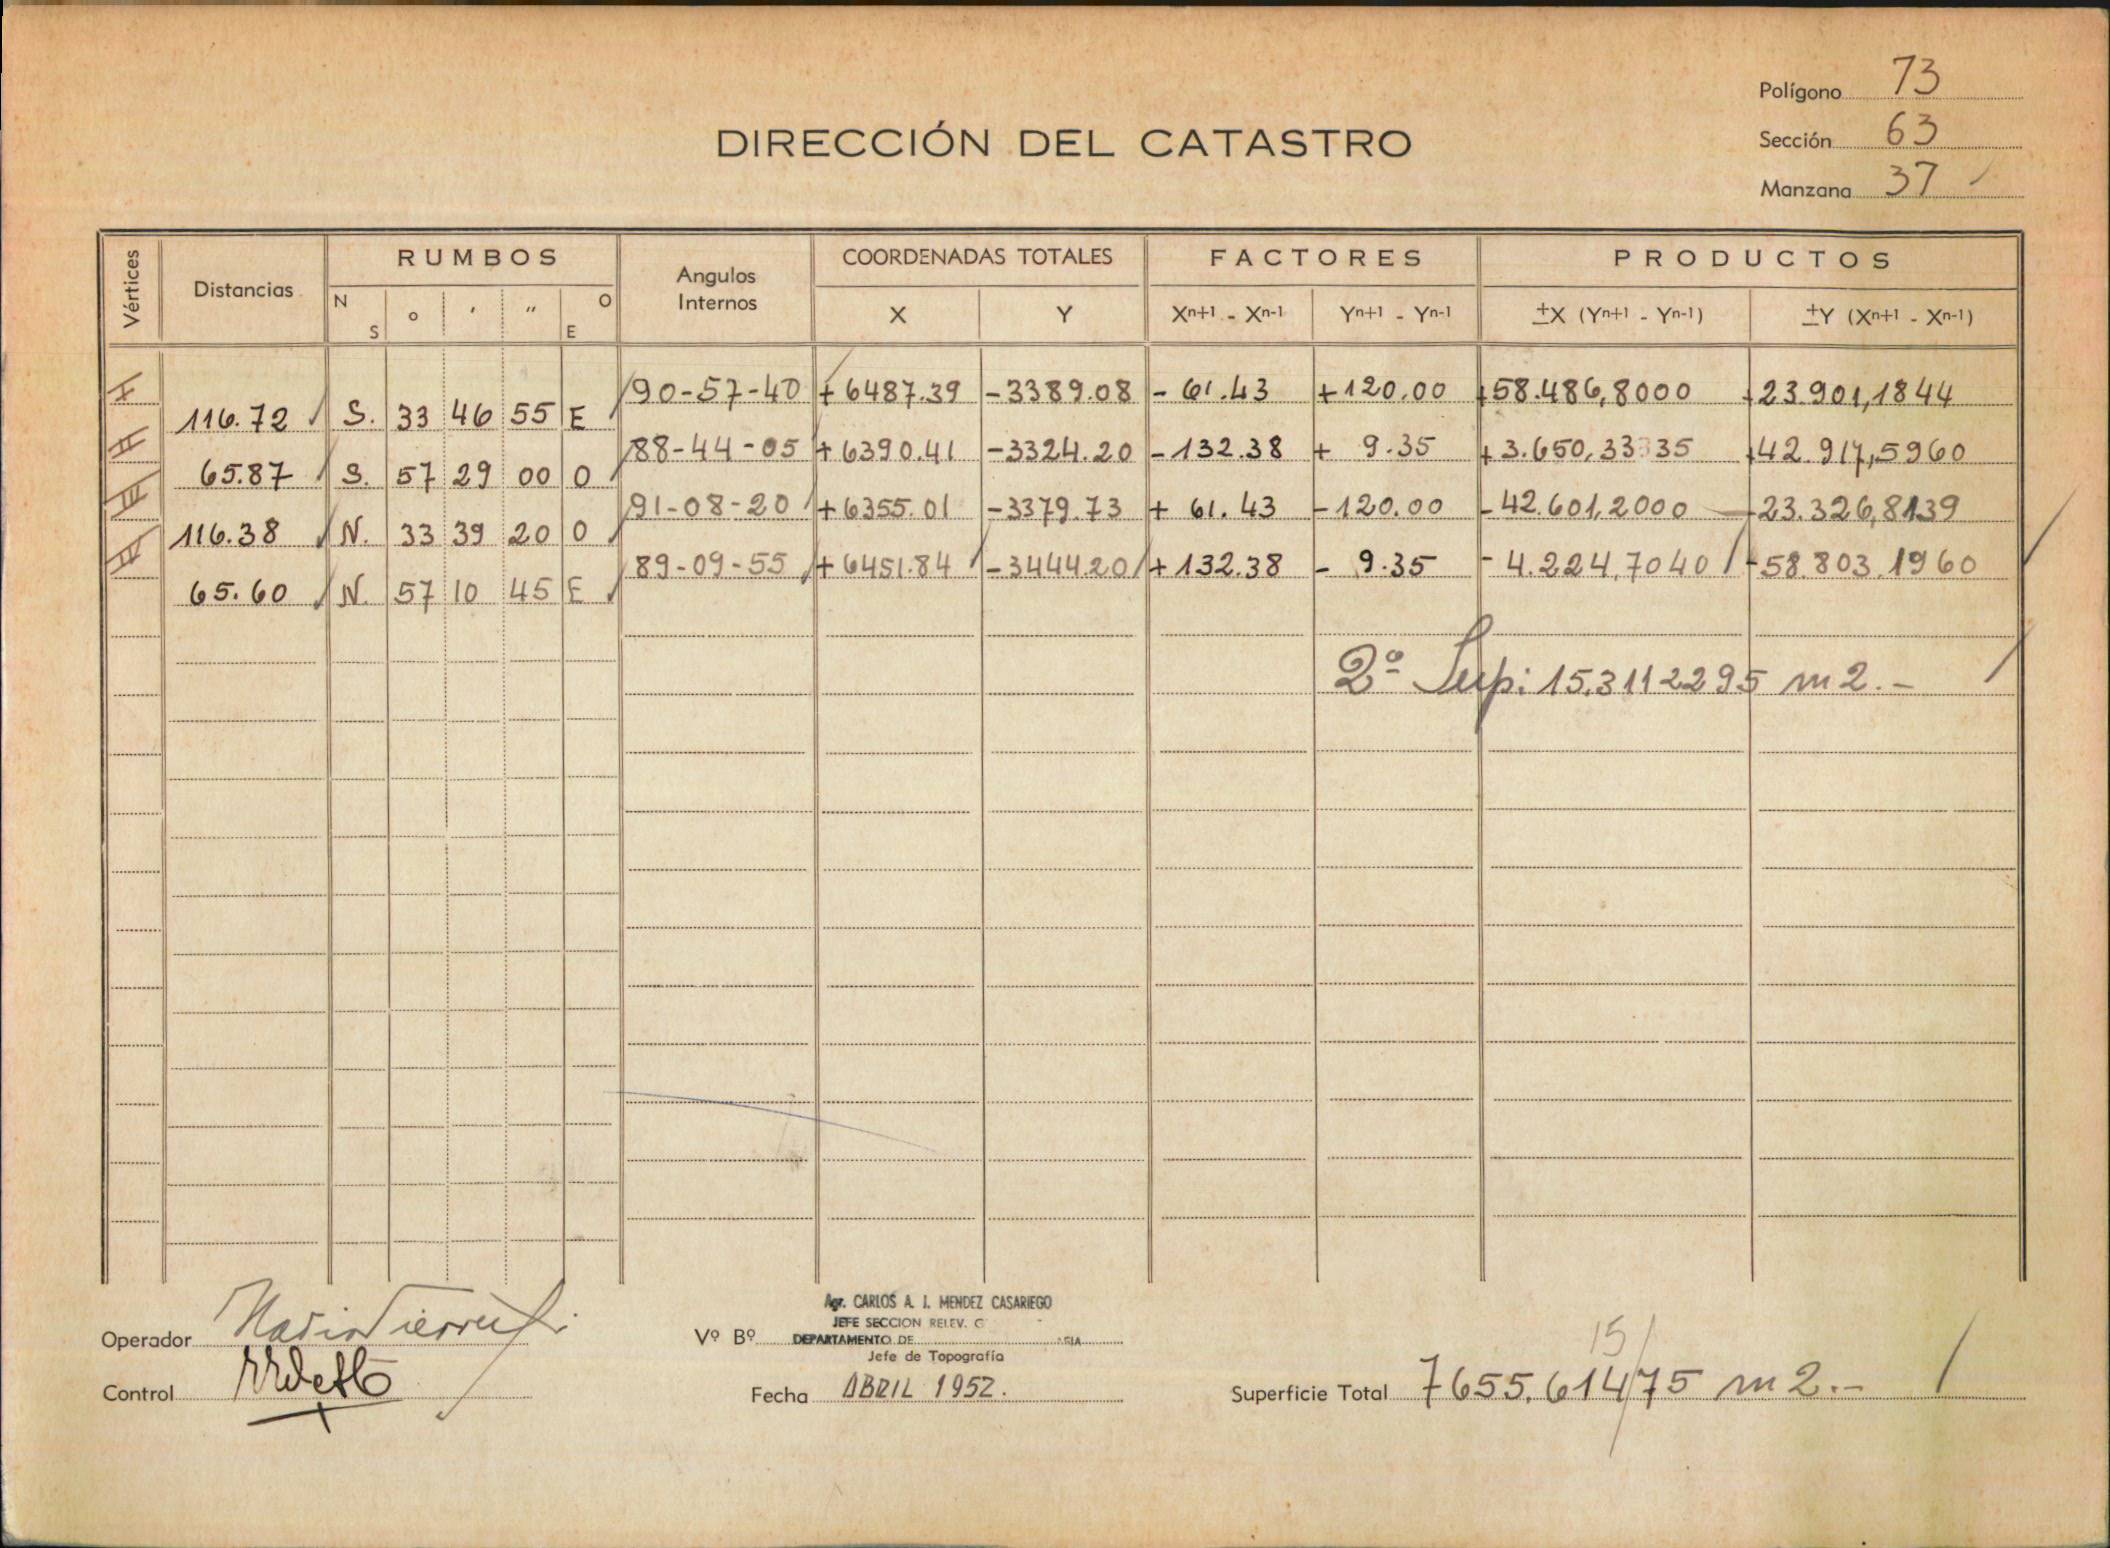 Polígono 73
DIRECCIÓN DEL CATASTRO
Sección 63
Manzana 37
Vértices Distancias RUMBOS Angulos Internos COORDENADAS TOTALES FACTORES PRODUCTOS
N S ° ' " O E X Y Xn+1 - Xn-1 Yn+1 - Yn-1 ±X (Yn+1 - Yn-1) ±Y (Xn+1 - Xn-1)
I 90-57-40 +6487.39 -3389.08 - 61.43 +120.00 +58.486,8000 +23.901,1844
116.72 S. 33 46 55 E
II 88-44-05 +6390.41 -3324.20 -132.38 + 9.35 +3.650,33335 +42.917,5960
65.87 S. 57 29 00 O
III 91-08-20 +6355.01 -3379.73 + 61.43 -120.00 -42.601,2000 -23.326,8139
116.38 N. 33 39 20 O
IV 89-09-55 +6451.84 -3444.20 +132.38 - 9.35 - 4.224,7040 -58.803,1960
65.60 N. 57 10 45 E
2º Sup: 15.3112295 m2.-
Agr. CARLOS A. J. MENDEZ CASARIEGO
JEFE SECCION RELEV. G
Operador Vº Bº DEPARTAMENTO DE
Jefe de Topografía
15
Control Fecha ABRIL 1952. Superficie Total 7655.61475 m2.-